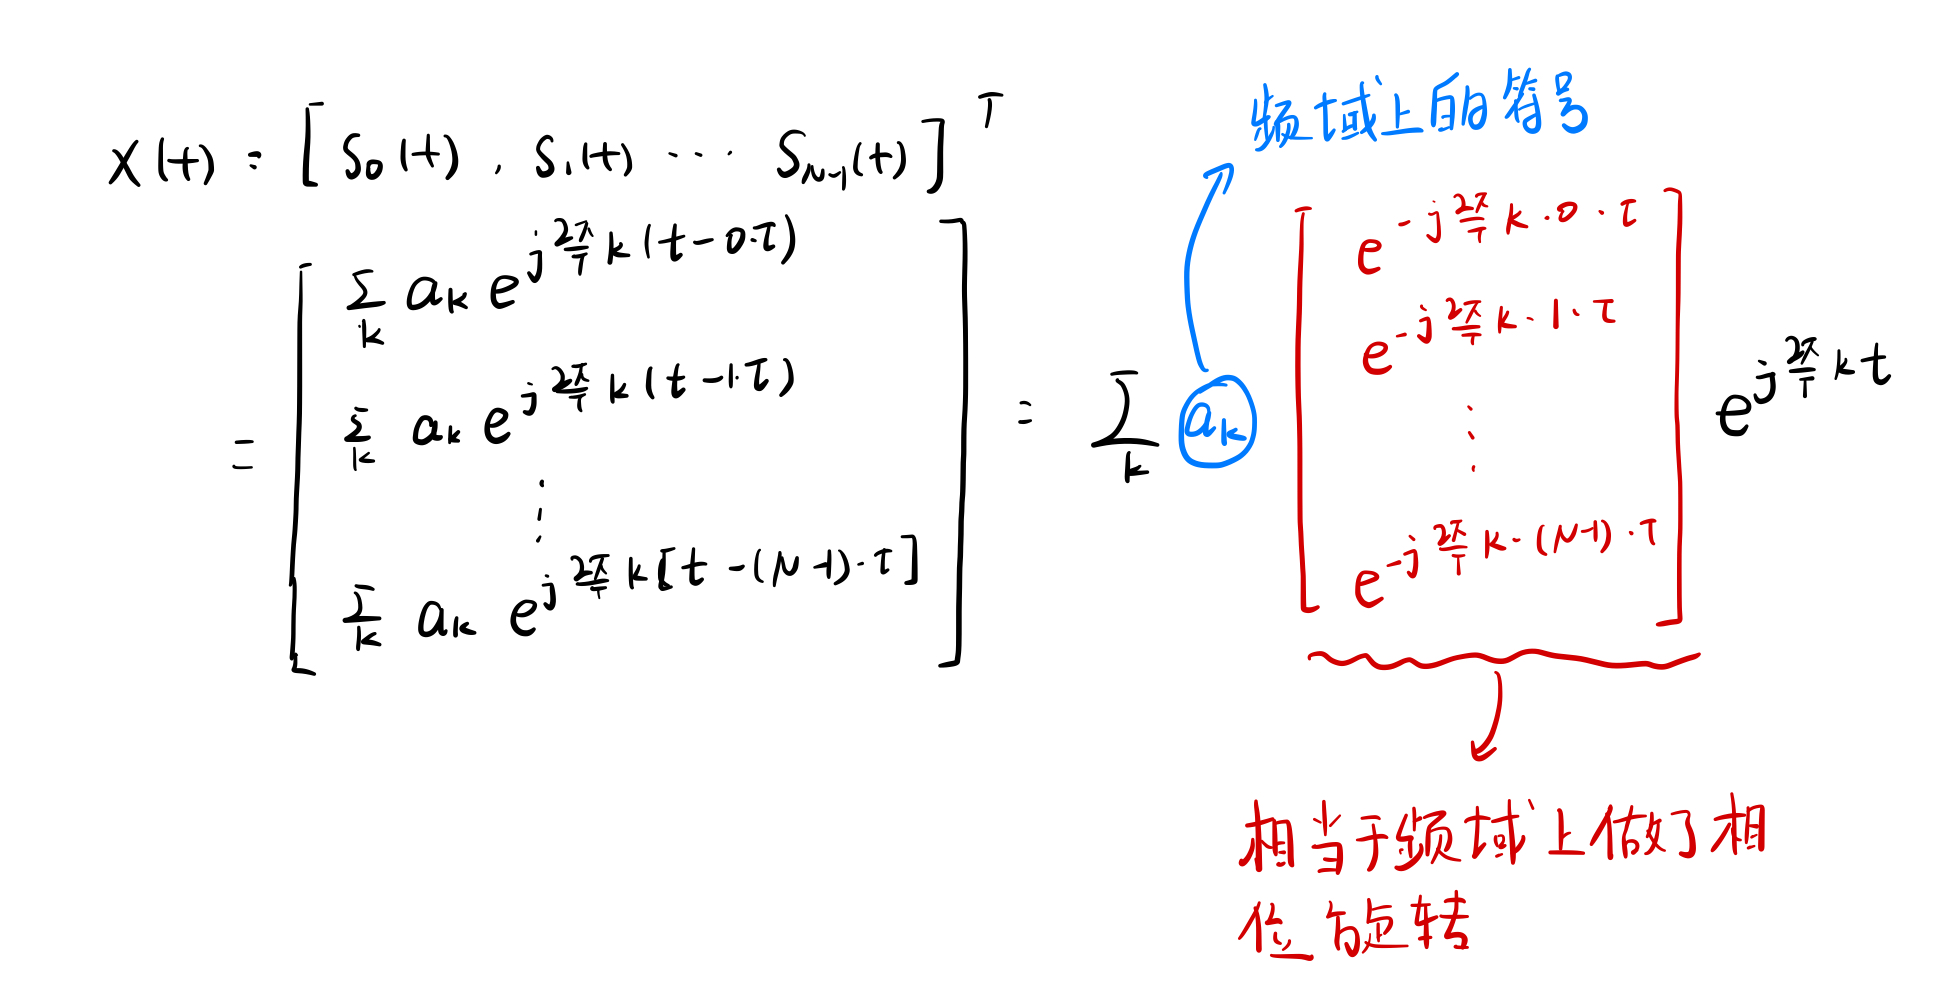 频域上的符号
X(t) = [ S₀(t) , S₁(t) ⋯ S_{N-1}(t) ]^T
= [ Σ_k a_k e^{j\frac{2π}{T}k(t-0·τ)}
Σ_k a_k e^{j\frac{2π}{T}k(t-1·τ)}
⋮
Σ_k a_k e^{j\frac{2π}{T}k[t-(N-1)·τ]} ]
= Σ_k a_k [ e^{-j\frac{2π}{T}k·0·τ}
e^{-j\frac{2π}{T}k·1·τ}
⋮
e^{-j\frac{2π}{T}k·(N-1)·τ} ] e^{j\frac{2π}{T}kt}
相当于频域上做了相
位旋转